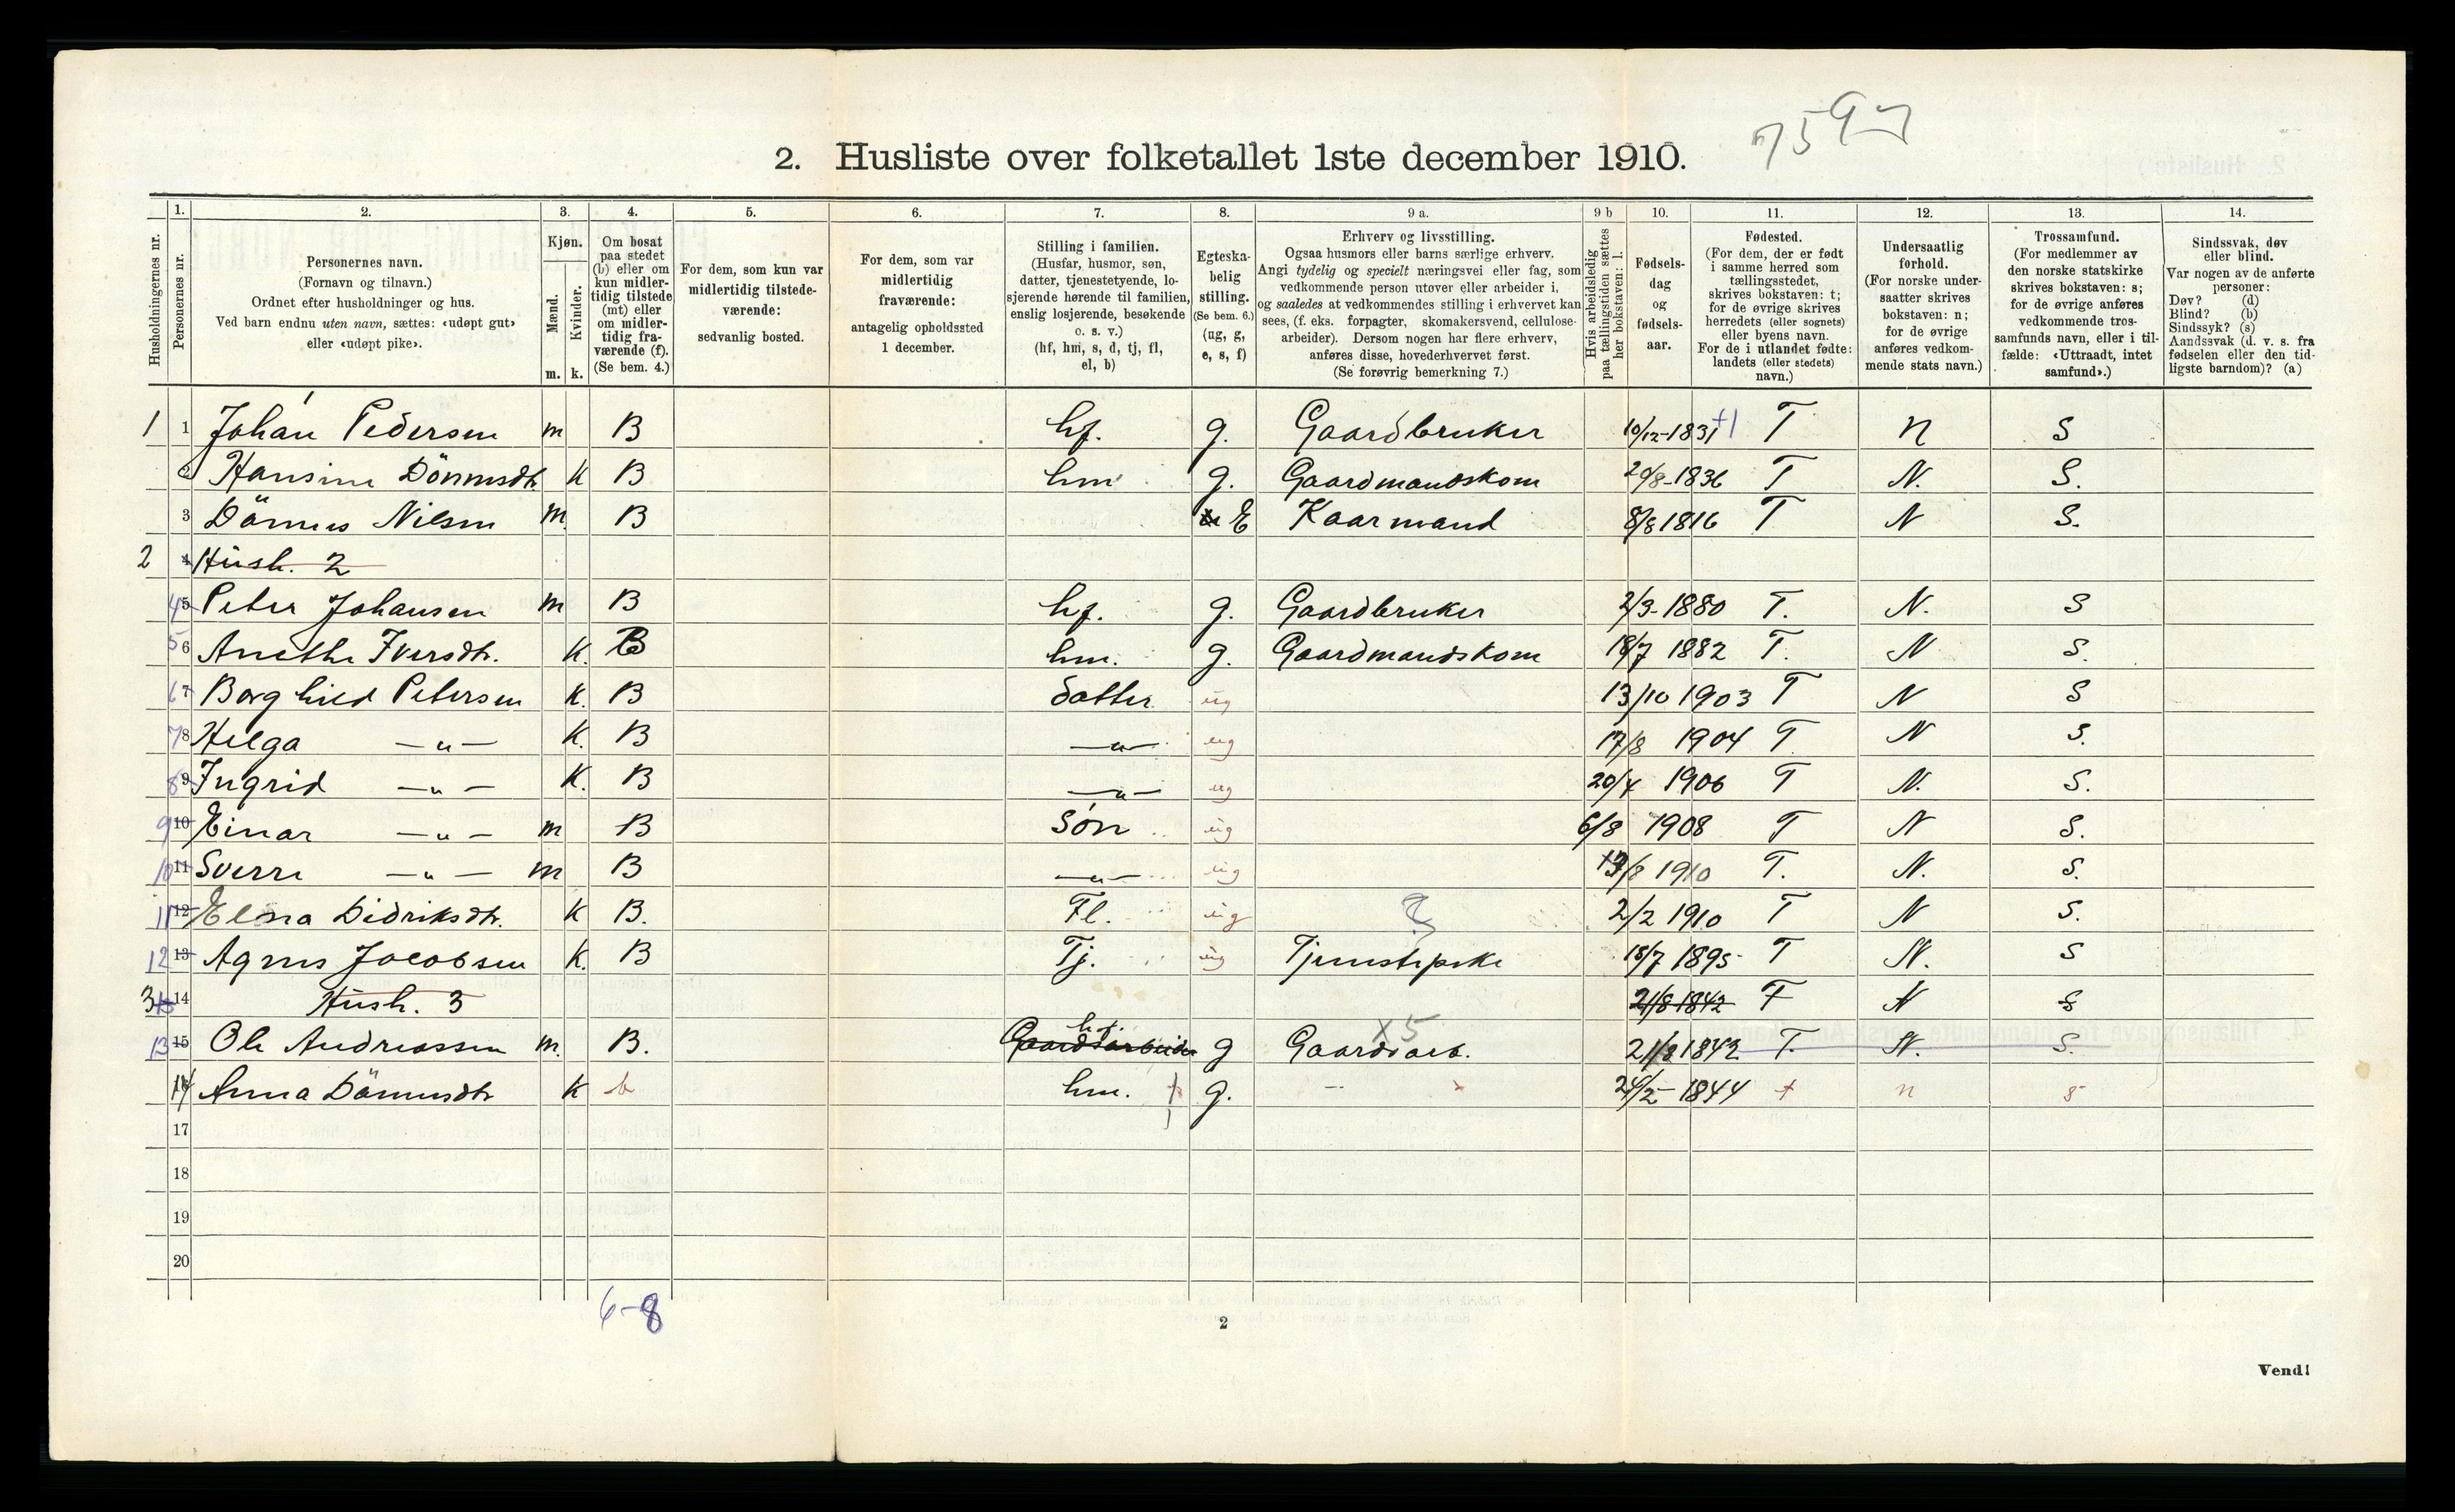 7597
2. Husliste over folketallet 1ste december 1910.
Husholdningernes nr.
1.
Personernes nr.
2.
Personernes navn.
(Fornavn og tilnavn.)
Ordnet efter husholdninger og hus.
Ved barn endnu uten navn, sættes: «udøpt gut»
eller «udøpt pike».
3.
Kjøn.
Mænd.
Kvinder.
m. k.
4.
Om bosat
paa stedet
(b) eller om
kun midler-
tidig tilstede
(mt) eller
om midler-
tidig fra-
værende (f).
(Se bem. 4.)
5.
For dem, som kun var
midlertidig tilstede-
værende:
sedvanlig bosted.
6.
For dem, som var
midlertidig
fraværende:
antagelig opholdssted
1 december.
7.
Stilling i familien.
(Husfar, husmor, søn,
datter, tjenestetyende, lo-
sjerende hørende til familien,
enslig losjerende, besøkende
o. s. v.)
(hf, hm, s, d, tj, fl,
el, b)
8.
Egteska-
belig
stilling.
(Se bem. 6.)
(ug, g,
e, s, f)
9 a.
Erhverv og livsstilling.
Ogsaa husmors eller barns særlige erhverv.
Angi tydelig og specielt næringsvei eller fag, som
vedkommende person utøver eller arbeider i,
og saaledes at vedkommendes stilling i erhvervet kan
sees, (f. eks. forpagter, skomakersvend, cellulose-
arbeider). Dersom nogen har flere erhverv,
anføres disse, hovederhvervet først.
(Se forøvrig bemerkning 7.)
9 b
Hvis arbeidsledig
paa tællingstiden sættes
her bokstaven: l.
10.
Fødsels-
dag
og
fødsels-
aar.
11.
Fødested.
(For dem, der er født
i samme herred som
tællingsstedet,
skrives bokstaven: t;
for de øvrige skrives
herredets (eller sognets)
eller byens navn.
For de i utlandet fødte:
landets (eller stedets)
navn.)
12.
Undersaatlig
forhold.
(For norske under-
saatter skrives
bokstaven: n;
for de øvrige
anføres vedkom-
mende stats navn.)
13.
Trossamfund.
(For medlemmer av
den norske statskirke
skrives bokstaven: s;
for de øvrige anføres
vedkommende tros-
samfunds navn, eller i til-
fælde: «Uttraadt, intet
samfund».)
14.
Sindssvak, døv
eller blind.
Var nogen av de anførte
personer:
Døv? (d)
Blind? (b)
Sindssyk? (s)
Aandssvak (d. v. s. fra
fødselen eller den tid-
ligste barndom)? (a)
1 1 Johan Pedersen m B hf. g. Gaardbruker 10/12-1831 +1 T n S
2 Hansine Dönnisdtr. K B hm g. Gaardmandskom 20/8-1836 T N. S.
3 Dönnes Nilsen m. B E Kaarmand 8/8 1816 T N S.
2 4 Hush. 2
4 5 Peter Johansen m B hf. g. Gaardbruker 2/3-1880 T. N. S
5 6 Anethe Iversdtr. K. B hm. g. Gaardmandskom 18/7 1882 T. N S.
6 7 Borghild Petersen K. B datter ug 13/10 1903 T N S
7 8 Helga —"— K. B —"— ug 17/8 1904 T N S.
8 9 Ingrid —"— K. B —"— ug 20/4 1906 T N. S.
9 10 Einar —"— m B Søn ug 6/8 1908 T N S.
10 11 Sverre —"— m B —"— ug 13/8 1910 T. N. S.
11 12 Elna Didriksdtr. K B. Fl. ug 2/2 1910 T N S.
12 13 Agnes Jacobsen K. B Tj. ug Tjenstepike 18/7 1895 T N. S
3 14 Hush. 3 21/8-1842 T N S
13 15 Ole Andreassen m. B. hf. Gaardsarbeider g Gaardsarb. x5 21/8 1842 T. N. S.
14 Anna Dönnisdtr K b hm. g. 24/2-1844 t n s
17
18
19
20
6-8
2
Vend!